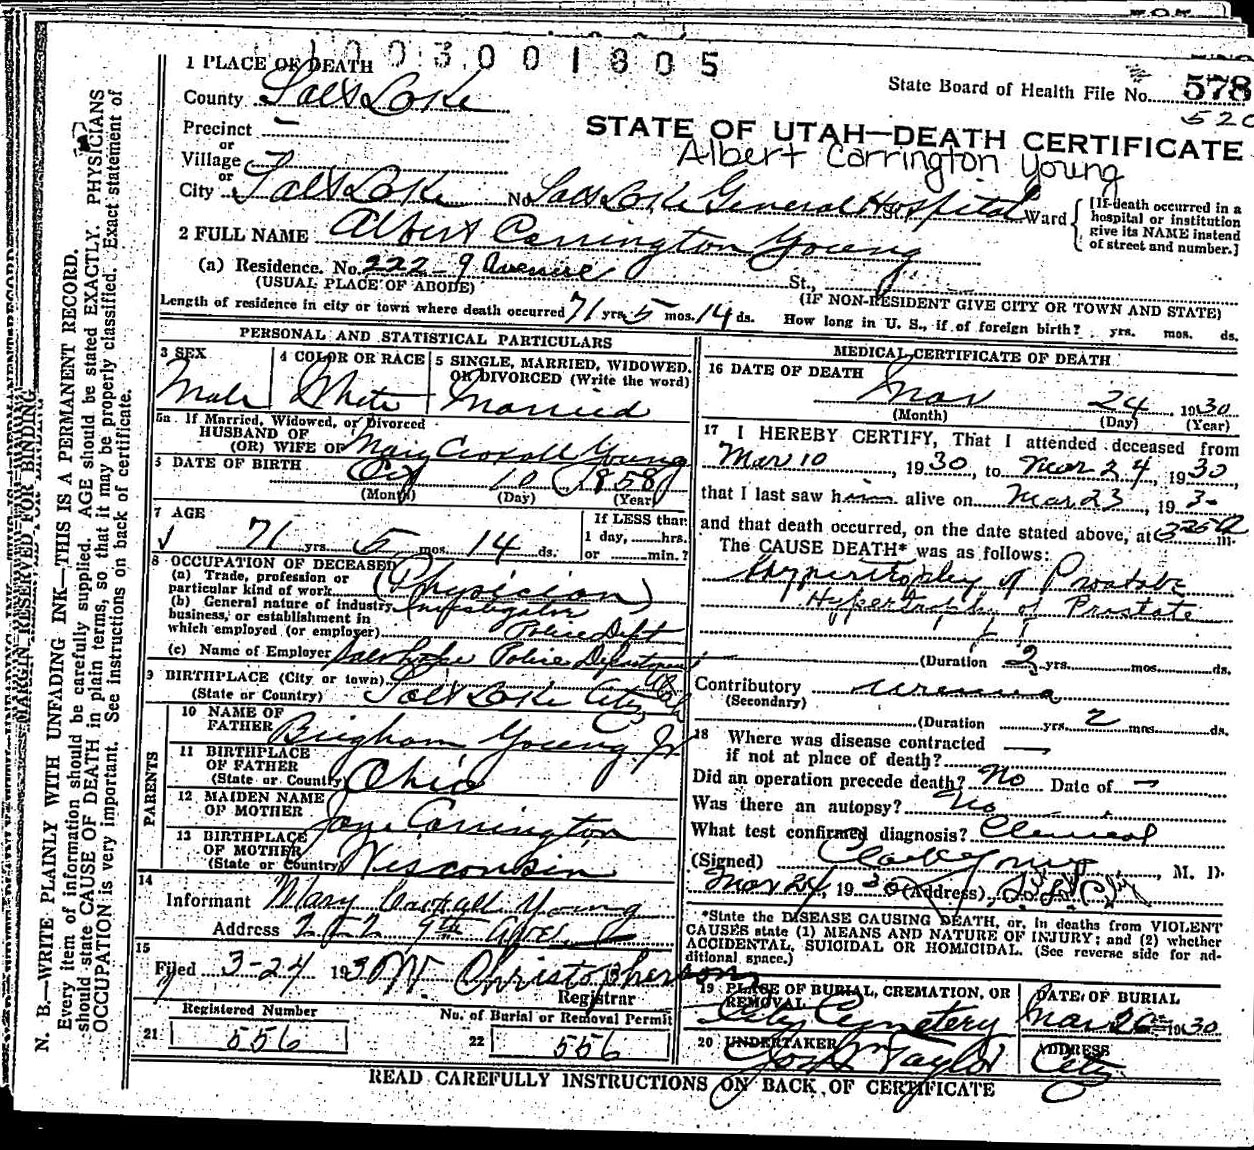 1003001805
1 PLACE OF DEATH
State Board of Health File No. 578
520
County Salt Lake
STATE OF UTAH—DEATH CERTIFICATE
Precinct –
Albert Carrington Young
or
Village
or
City Salt Lake No. Salt Lake General Hospital Ward
[If death occurred in a
hospital or institution
give its NAME instead
of street and number.]
2 FULL NAME Albert Carrington Young
(a) Residence. No. 222 - 9 Avenue St.,
(USUAL PLACE OF ABODE) (IF NON-RESIDENT GIVE CITY OR TOWN AND STATE)
Length of residence in city or town where death occurred 71 yrs. 5 mos. 14 ds. How long in U. S., if of foreign birth? yrs. mos. ds.
PERSONAL AND STATISTICAL PARTICULARS
3 SEX
Male
4 COLOR OR RACE
White
5 SINGLE, MARRIED, WIDOWED,
OR DIVORCED (Write the word)
Married
5a If Married, Widowed, or Divorced
HUSBAND OF
(OR) WIFE OF Mary Croxall Young
6 DATE OF BIRTH Oct 10 1858
(Month) (Day) (Year)
7 AGE
71 yrs. 5 mos. 14 ds.
If LESS than
1 day, ......hrs.
or ......min.?
8 OCCUPATION OF DECEASED
(a) Trade, profession or
particular kind of work (Physician)
(b) General nature of industry,
business, or establishment in
which employed (or employer)
Investigator
Police Dept
(c) Name of Employer Salt Lake Police Department
9 BIRTHPLACE (City or town)
(State or Country) Salt Lake City Utah
PARENTS
10 NAME OF
FATHER Brigham Young Jr
11 BIRTHPLACE
OF FATHER
(State or Country) Ohio
12 MAIDEN NAME
OF MOTHER Jane Carrington
13 BIRTHPLACE
OF MOTHER
(State or Country) Wisconsin
14
Informant Mary Croxall Young
Address 222 9th Ave
15
Filed 3-24 1930 W Christopherson
Registrar
Registered Number
21 556
No. of Burial or Removal Permit
22 556
MEDICAL CERTIFICATE OF DEATH
16 DATE OF DEATH
Mar 24, 1930
(Month) (Day) (Year)
17 I HEREBY CERTIFY, That I attended deceased from
Mar 10, 1930, to Mar 24, 1930,
that I last saw him alive on Mar 23, 193-
and that death occurred, on the date stated above, at 325 a m.
The CAUSE DEATH* was as follows:
Hypertrophy of Prostate
Hypertrophy of Prostate
(Duration 2 yrs. mos. ds.
Contributory Uremia
(Secondary)
(Duration yrs. 2 mos. ds.
18 Where was disease contracted
if not at place of death? —
Did an operation precede death? No Date of —
Was there an autopsy? No
What test confirmed diagnosis? Clinical
(Signed) Clark Young, M. D.
Mar 24, 1930 (Address) S.L.C.
*State the DISEASE CAUSING DEATH, or, in deaths from VIOLENT
CAUSES state (1) MEANS AND NATURE OF INJURY; and (2) whether
ACCIDENTAL, SUICIDAL OR HOMICIDAL. (See reverse side for ad-
ditional space.)
19 PLACE OF BURIAL, CREMATION, OR
REMOVAL
City Cemetery
DATE OF BURIAL
Mar 26 1930
20 UNDERTAKER
Jos Wm Taylor
ADDRESS
City
READ CAREFULLY INSTRUCTIONS ON BACK OF CERTIFICATE
MARGIN RESERVED FOR BINDING
N. B.—WRITE PLAINLY WITH UNFADING INK—THIS IS A PERMANENT RECORD.
Every item of information should be carefully supplied. AGE should be stated EXACTLY. PHYSICIANS
should state CAUSE OF DEATH in plain terms, so that it may be properly classified. Exact statement of
OCCUPATION is very important. See instructions on back of certificate.